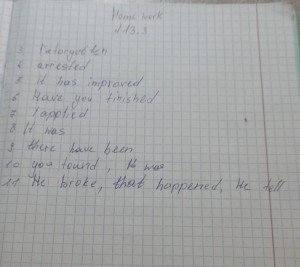 Home work
3. I
4. arrested
5. it has improved
6. Have you finished
7. I applied
8. It was
9. there have been
10. you found, It was
11. He broke, that happened, He fell